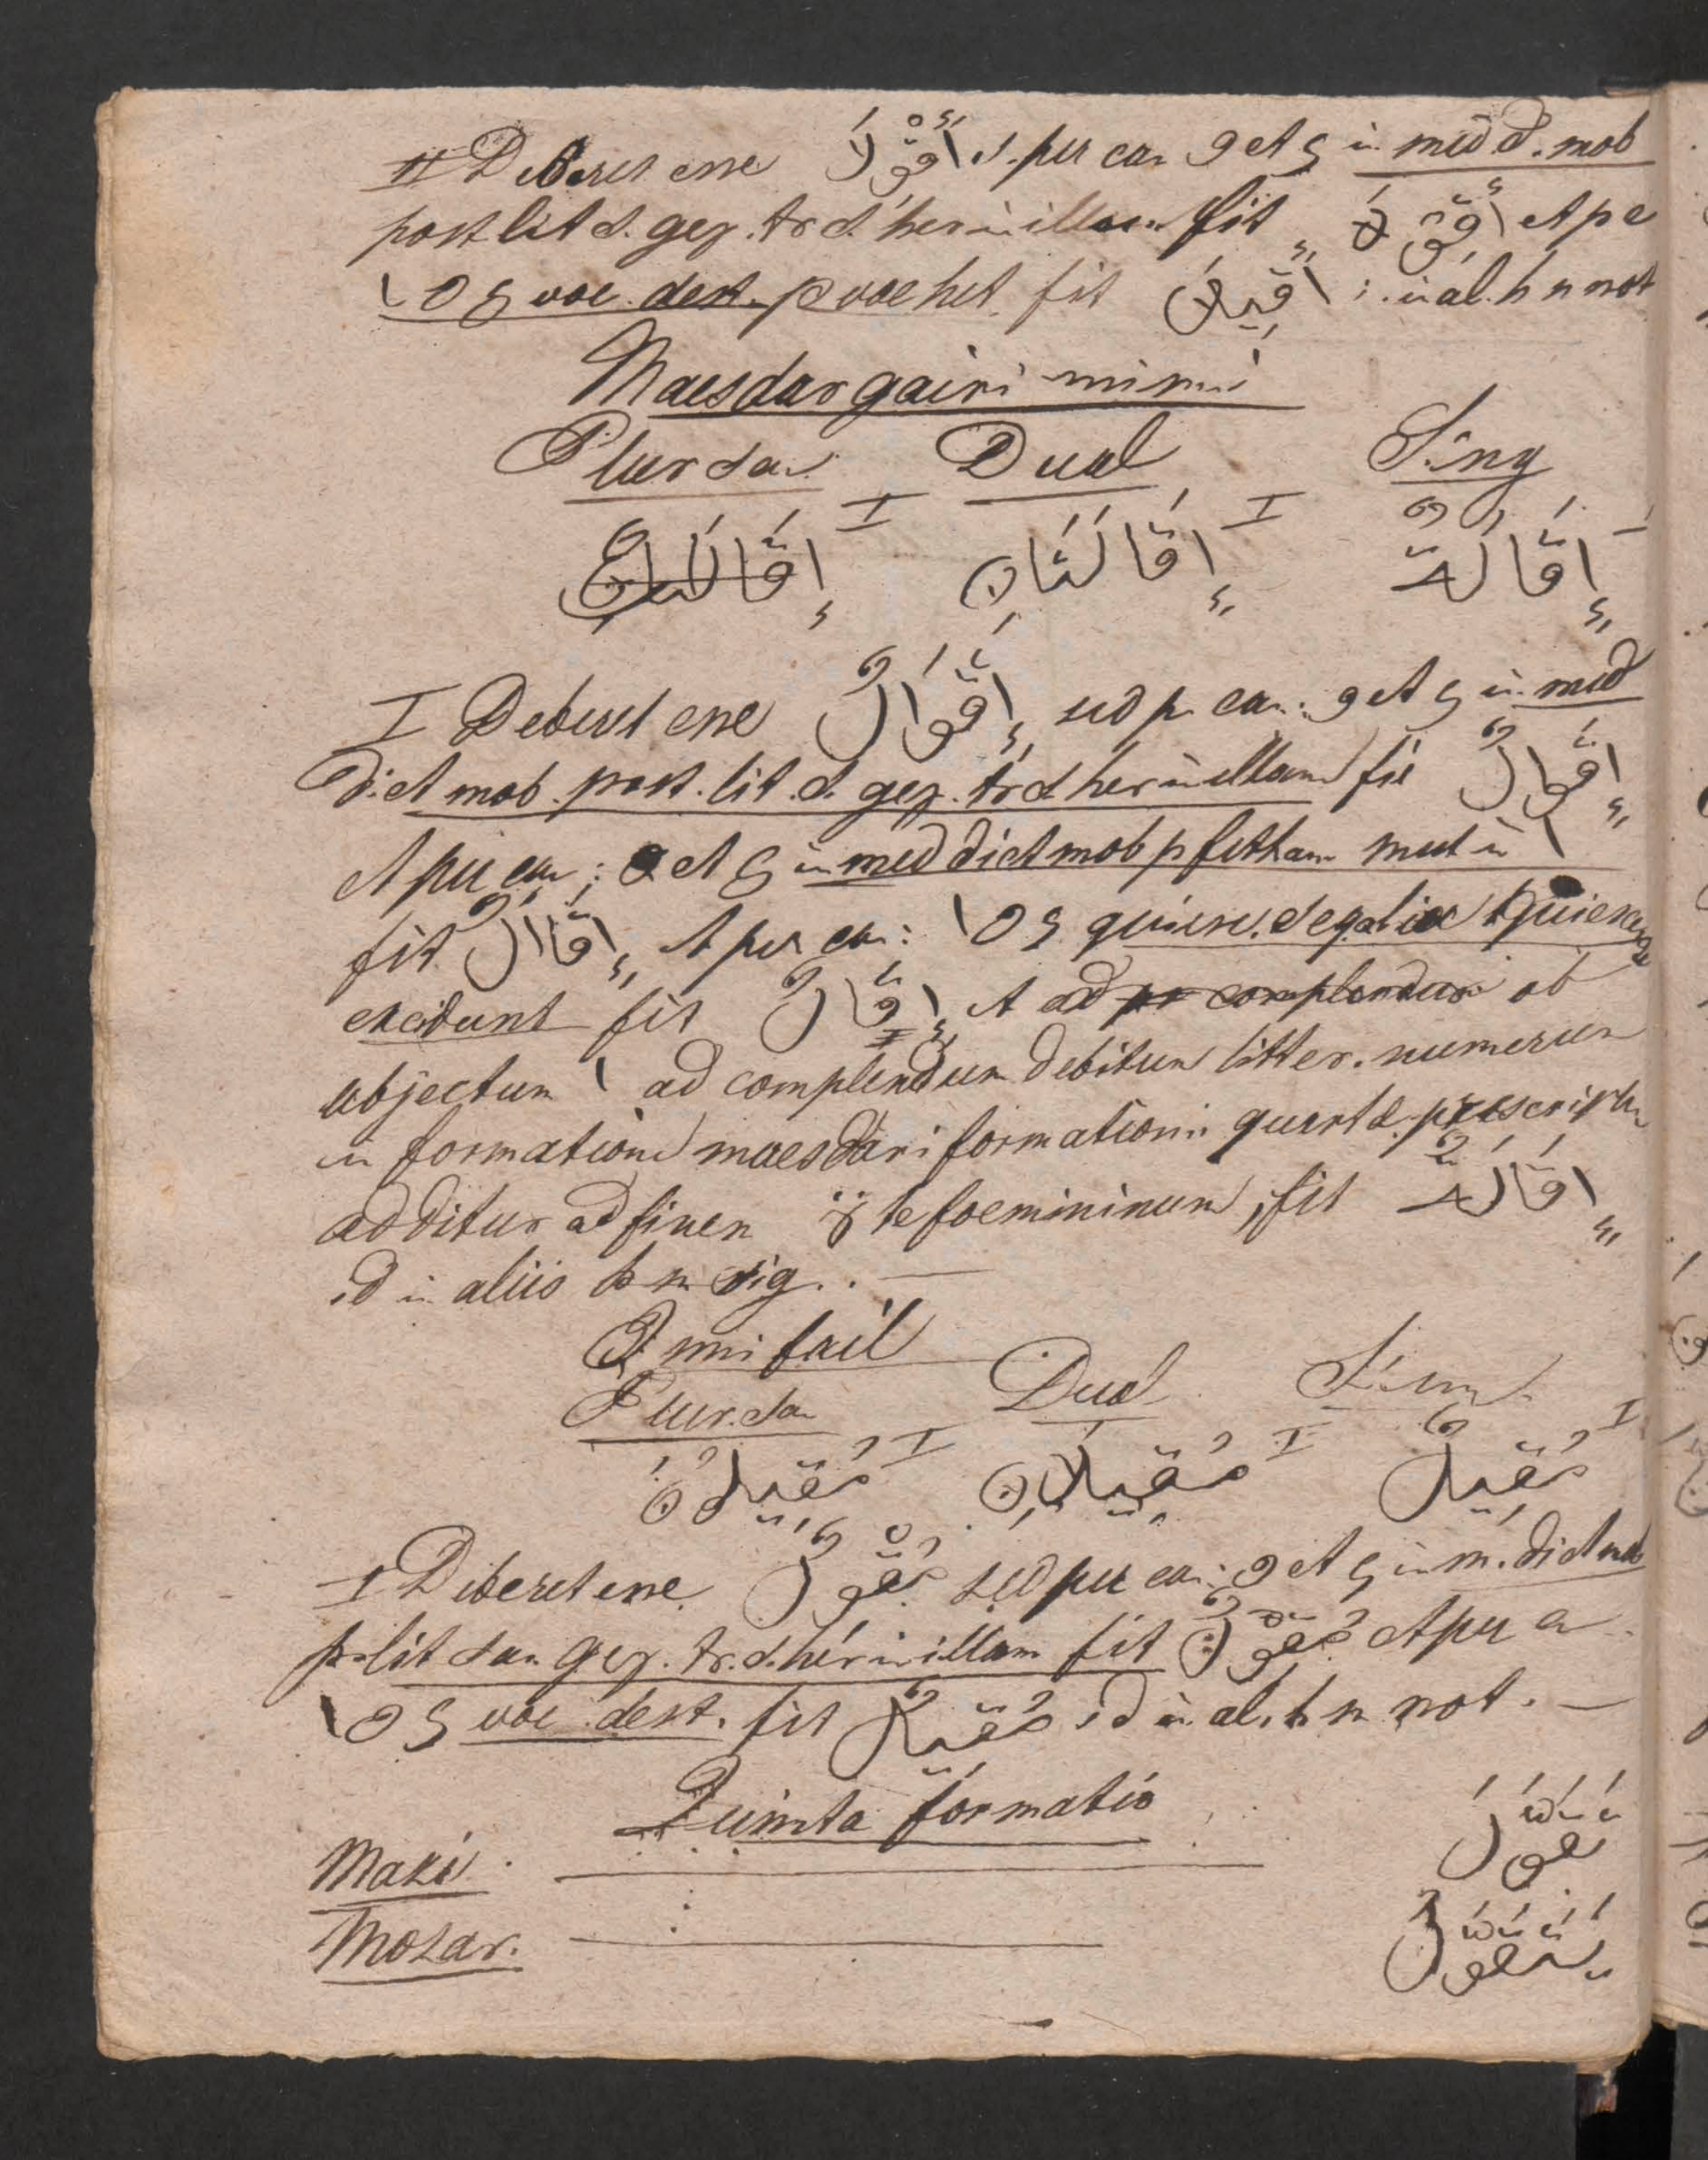 II Deberet esse أُقْوِلَ s. per can و et ي in med d. mob
post lit d. gez. tr d. her in illam fit أُقِوْلَ et p c
ا و ي voc. dest. p voc het. fit أُقِيلَ i. in al. h n not
Maesdar gairi mimi
Plur san Dual Sing
I I I
إِقَالَتَانِ إِقَالَةٌ
I Deberet esse إِقْوَالٌ sed p can: و et ي in med
dict mob. post. lit. d. gez. tr d her in illam fit إِقَوالٌ
et per can: و et ي in med dict mob p fetham mut in ا
fit إِقَاالٌ et per can: ا و ي quiesc.
excidunt fit إِقَالٌ et ad complendum ob
abjectum ا ad complendum debitum litter. numerum
in formatione maesdari formationi quartae
additur ad finem ة te foemininum, fit إِقَالَةٌ
id in aliis h n sig. —
Ismi fail
Plur. san Dual Sing
I I I
مُقِيلُونَ مُقِيلَانِ مُقِيلٌ
I Deberet esse مُقْوِلٌ sed per can: و et ي in m. dict mob
p. lit san gez. tr. d. her in illam fit مُقِوْلٌ et per can
ا و ي voc. dest. fit مُقِيلٌ id in al. h n not. —
Quinta formatio
Mazi — تَقَوَّلَ
Mozar. — يَتَقَوَّلُ